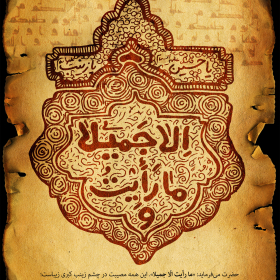 الا جمیلا
ما رأیت
و
حضرت می‌فرماید: «ما رأیت الا جمیلا»، این همه مصیبت در چشم زینب کبری زیباست؛